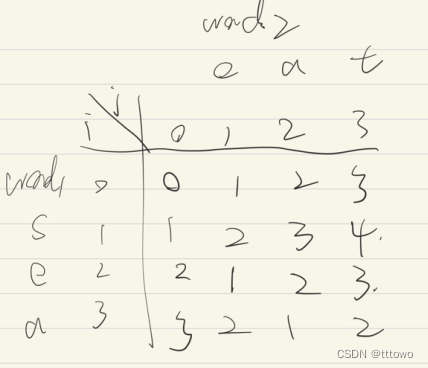 word2
e a t
j
i 0 1 2 3
word1 0 0 1 2 3
s 1 1 2 3 4.
e 2 2 1 2 3.
a 3 3 2 1 2
CSDN @tttowo